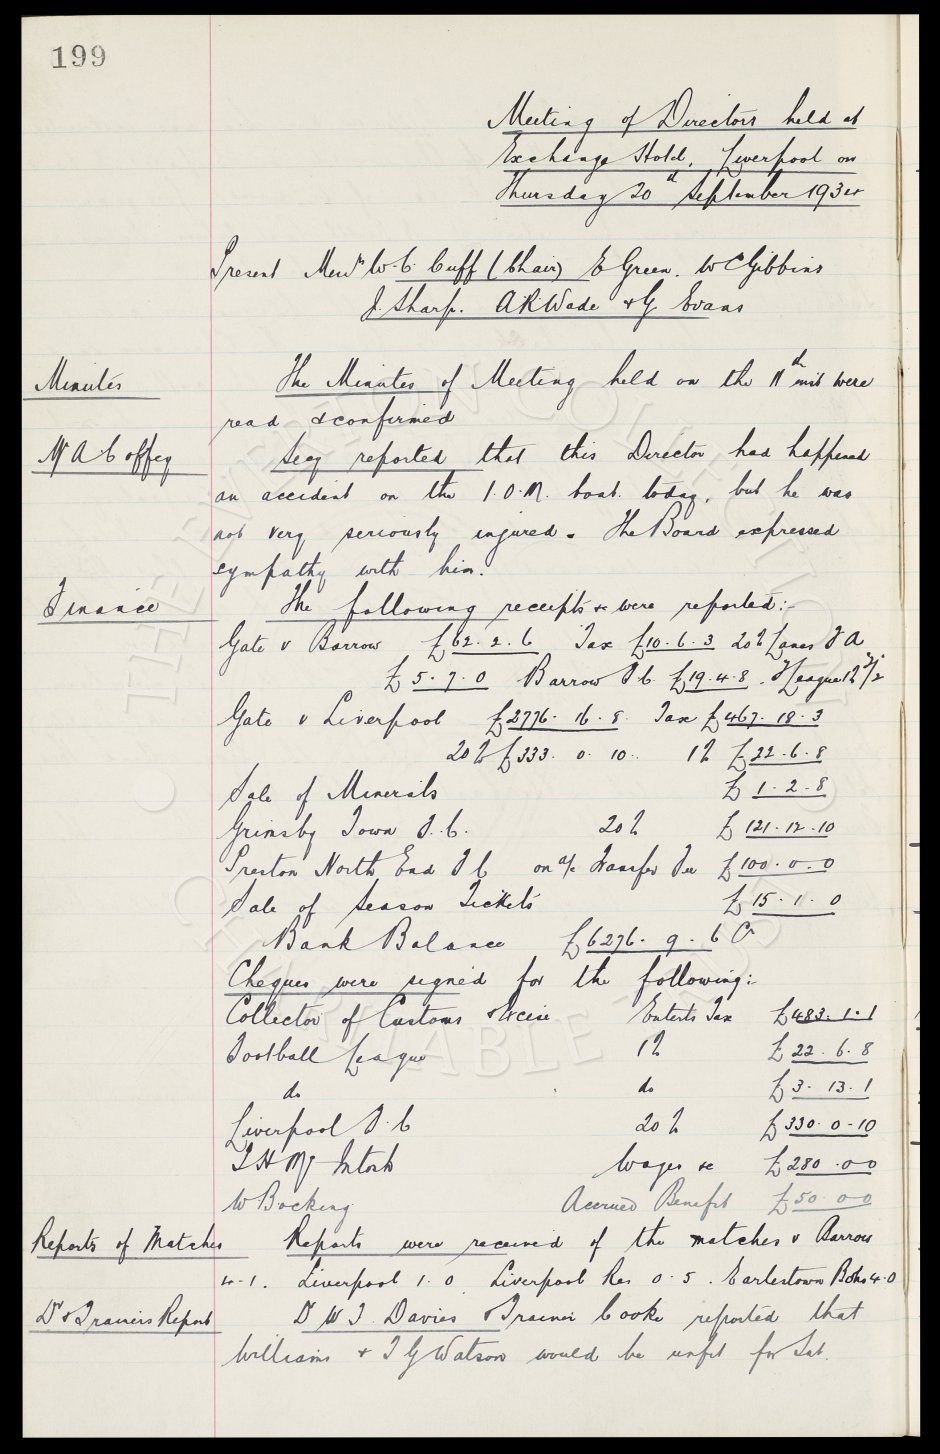 199
Meeting of Directors held at
Exchange Hotel, Liverpool on
Thursday 20th September 1934
Present Messrs W.C. Cuff (Chair) E Green. W C Gibbins
J. Sharp. A.R. Wade & G. Evans
Minutes The Minutes of Meeting held on the 11th inst were
read & confirmed
Mr A Coffey Secy reported that this Director had happened
an accident on the I.O.M. boat today, but he was
not very seriously injured. The Board expressed
sympathy with him.
Finance The following receipts &c were reported:-
Gate v Barrow £62.2.6 Tax £10.6.3 20% Lancs F A
£5.7.0 Barrow F.C. £19.4.8. F League 1%
Gate v Liverpool £2776.16.8 Tax £467.18.3
20% £333.0.10. 1% £22.6.8
Sale of Minerals £1.2.8
Grimsby Town F.C. 20% £121.12.10
Preston North End F C on a/c Transfer Fee £100.0.0
Sale of Season Tickets £15.1.0
Bank Balance £6276.9.6 Cr
Cheques were signed for the following:-
Collector of Customs & Excise Enterts Tax £483.1.1
Football League 1% £22.6.8
do do £3.13.1
Liverpool F.C 20% £330.0.10
T H McIntosh Wages &c £280.0.0
W Bocking Accrued Benefit £50.0.0
Reports of Matches Reports were received of the matches v Barrow
4-1. Liverpool 1.0 Liverpool Res 0.5. Earlestown Boho 4.0
Dr & Trainers Report Dr W J. Davies & Trainer Cooke reported that
Williams & T G Watson would be unfit for Sat.
THE EVERTON COLLECTION
CHARITABLE TRUST